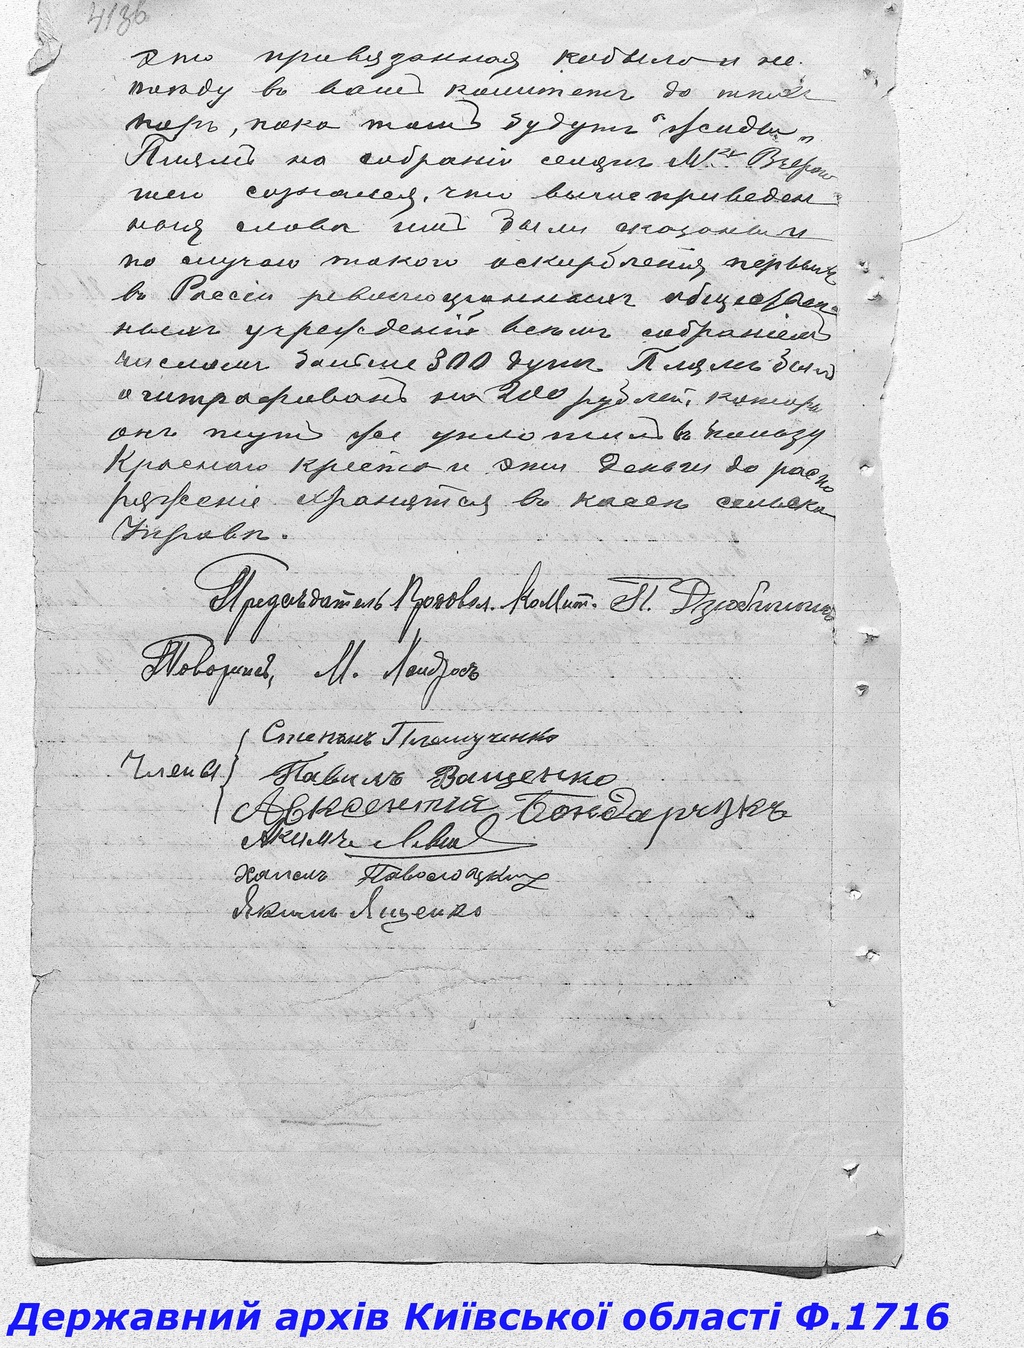 413б
это привязанная кобыла и не
пойду въ вашъ комитетъ до тѣхъ
поръ, пока тамъ будутъ "жиды"
на собраніи селянъ
сознался, что вышеприведен
ныя слова имъ были сказаны и
по случаю такого оскорбленія первыхъ
въ Россіи революціонныхъ обществен
ныхъ учрежденій всѣмъ собраніемъ
числомъ больше 300 душъ былъ
оштрафованъ на 200 рублей, которые
онъ тутъ же уплотилъ въ пользу
Краснаго креста и эти деньги до распо
ряженія хранятся въ кассѣ сельской
Управы.
Предсѣдатель Комит. П.
М.
Степанъ
Члены Павилъ Ващенко
Авксентій Бондарчукъ
Акимъ
Якимъ Ященко
Державний архів Київської області Ф.1716